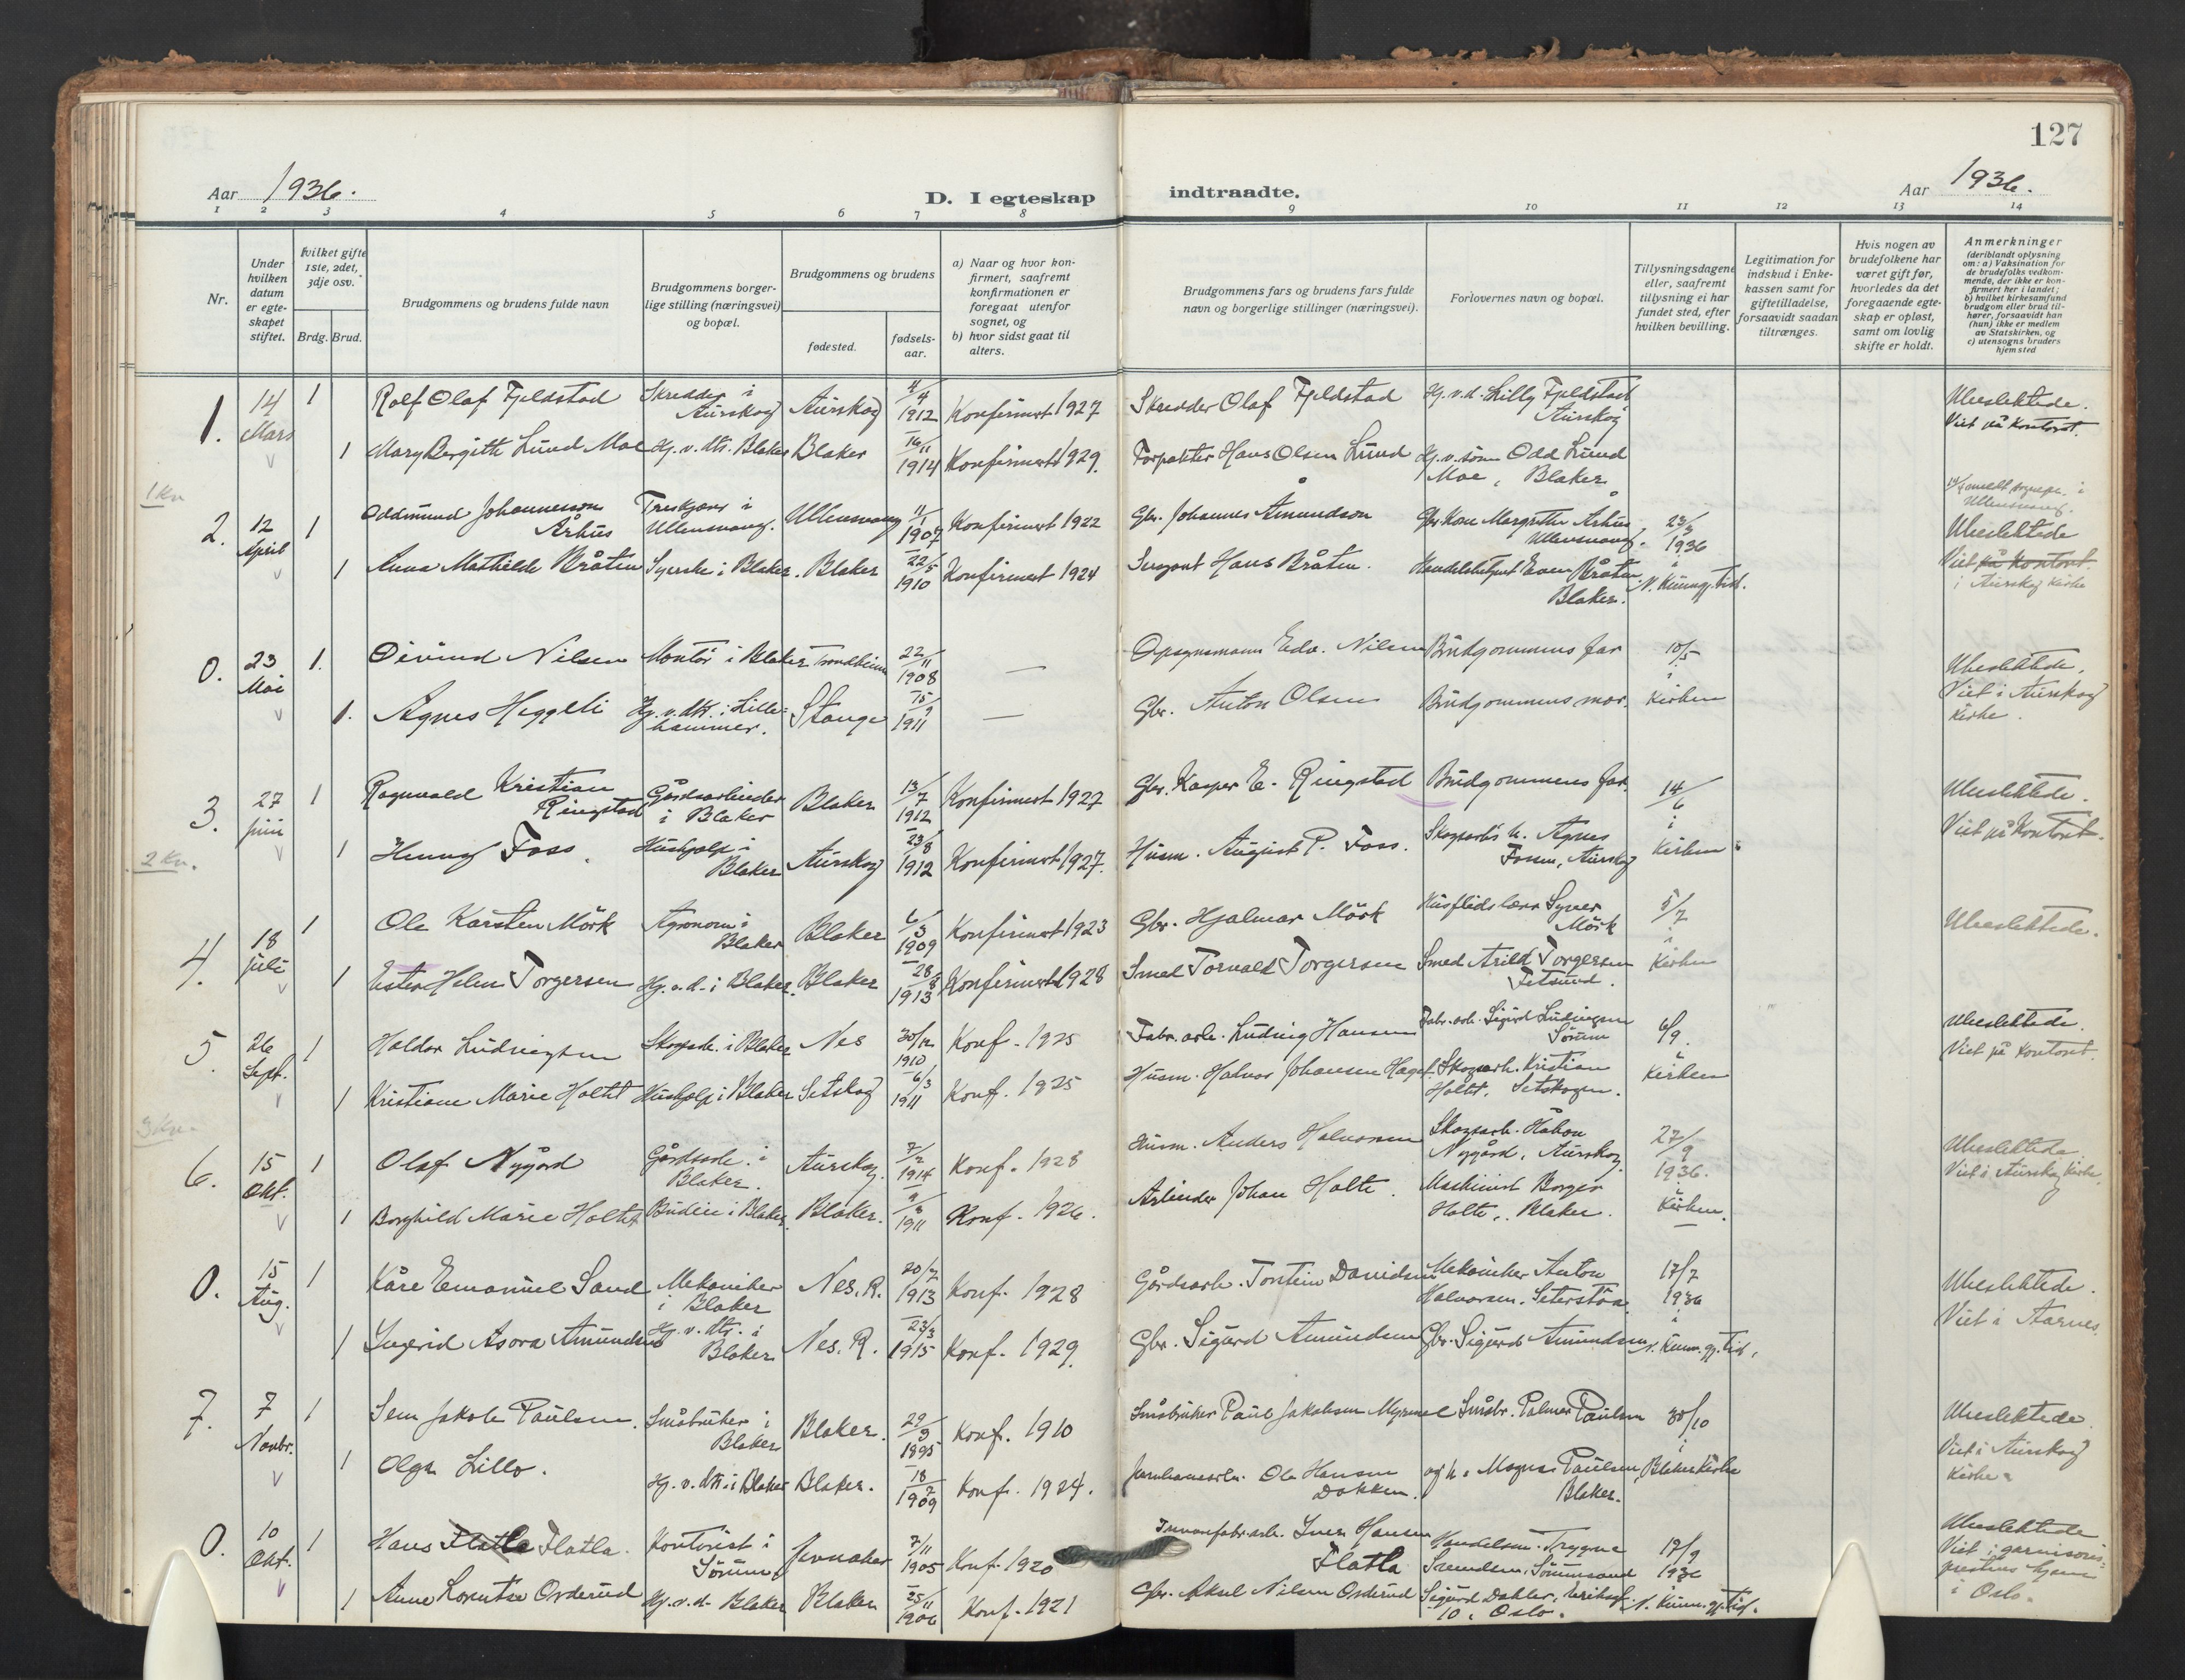 127
Aar 1936.
D. I egteskap indtraadte.
Aar 1936.
1 2 3 4 5 6 7 8 9 10 11 12 13 14
Nr.
Under hvilken datum er egte-skapet stiftet.
Hvilket gifte 1ste, 2det, 3dje osv.
Brdg. Brud.
Brudgommens og brudens fulde navn
Brudgommens borger-lige stilling (næringsvei) og bopæl.
Brudgommens og brudens
fødested.
fødsels-aar.
a) Naar og hvor kon-firmert, saafremt konfirmationen er foregaat utenfor sognet, og
b) hvor sidst gaat til alters.
Brudgommens fars og brudens fars fulde navn og borgerlige stillinger (næringsvei).
Forlovernes navn og bopæl.
Tillysningsdagene eller, saafremt tillysning ei har fundet sted, efter hvilken bevilling.
Legitimation for indskud i Enke-kassen samt for giftetilladelse, forsaavidt saadan tiltrænges.
Hvis nogen av brudefolkene har været gift før, hvorledes da det foregaaende egte-skap er opløst, samt om lovlig skifte er holdt.
Anmerkninger (deriblandt oplysning om: a) Vaksination for de brudefolks vedkom-mende, der ikke er kon-firmert her i landet; b) hvilket kirkesamfund brudgom eller brud til-hører, forsaavidt han (hun) ikke er medlem av Statskirken, og c) utensogns bruders hjemsted
1. 14 Mars 1 Rolf Olaf Fjeldstad Skredder i Aurskog Aurskog 4/4 1912 Konfirmert 1927 Skredder Olaf Fjeldstad Hj.v.d. Lilly Fjeldstad Aurskog Ubeslektede. Viet på kontoret.
1 Mary Bergitte Lund Moe Hj.v.dtr. Blaker Blaker 16/11 1914 Konfirmert 1929. Forpakter Hans Olsen Lund Hj.v.søn Odd Lund Moe, Blaker.
1 Kn
2. 12 April 1 Oddmund Johannesson Århus Treskjærer i Ullensvang. Ullensvang 11/1 1907 Konfirmert 1922 Gbr. Johannes Åmundson Gbr.kone Margrethe Århus Ullensvang. 29/3 1936 i Ubeslektede
1 Anna Mathilde Bråten Syerske i Blaker. Blaker 22/5 1910 Konfirmert 1924 Sersjant Hans Bråten. Bråten Blaker. N. Kunngj. tid. Viet på kontoret. i Aurskog kirke
0. 23 Mai 1. Øivind Nilsen Montør i Blaker Trondheim 22/11 1908 — Opsynsmann Edv. Nilsen Brudgommens far 10/5 i Ubeslektede. Viet i Aurskog kirke.
1. Agnes Heggeli Hj.v.dtr. i Lille-hammer. Stange 15/9 1911 — Gbr. Anton Olsen Brudgommens mor. kirken
3. 27 juni 1 Ragnvald Kristian Ringstad Gårdsarbeider i Blaker Blaker 13/7 1912 Konfirmert 1927 Gbr. Kasper E. Ringstad Brudgommens far. 14/6 i Ubeslektede. Viet på Kontoret.
2 Kn.
1 Henny Foss. Hushjelp i Blaker Aurskog 23/8 1912 Konfirmert 1927. Husm. August P. Foss. Skogsarb's h. Agnes Fossen, Aurskog kirken
4. 18 juli 1 Ole Karsten Mörk Agronom i Blaker Blaker 6/3 1909 Konfirmert 1923 Gbr. Hjalmar Mörk Husflidslærer Syver Mörk 5/7 i Ubeslektede.
1 Ester Helene Torgersen Hj.v.d. i Blaker. Blaker 28/8 1913 Konfirmert 1928 Smed Torvald Torgersen Smed Arild Torgersen Fetsund. kirken
5. 26 Sept. 1 Haldor Ludvigsen Skogsarb. i Blaker Nes 30/12 1910 Konf. 1925 Fabr.arb. Ludvig Hansen Fabr.arb. Sigurd Ludvigsen Sørum 6/9. i Ubeslektede. Viet på kontoret.
1 Kristiane Marie Holtet Hushjelp i Blaker Setskog 6/3 1911 Konf. 1925 Husm. Halvor Johansen Skogsarb. Kristian Holtet, Setskogen. kirken
3 Kn.
6. 15 Okt. 1 Olaf Nygård Gårdsarb. i Blaker. Aurskog. 7/2 1914 Konf. 1928 Husm. Anders Halvorsen Skogsarb. Håkon Nygård, Aurskog 27/9 1936. i Ubeslektede. Viet i Aurskog kirke.
1 Borghild Marie Holtet Budeie i Blaker. Blaker. 1911 Konf. 1926. Arbeider Johan Holte. Maskinist Borger Holte, Blaker. Kirken.
0. 15 Aug. 1 Kåre Emanuel Sand Mekaniker i Blaker Nes. R. 20/7 1913 Konf. 1928 Gårdsarb. Torstein Davidsen Mekaniker Anton Halvorsen. Seterstøa. 17/7 1936 i Ubeslektede. Viet i Aarnes.
1 Ingrid Asora Amundsen Hj.v.dtr. i Blaker Nes. R. 23/3 1915 Konf. 1929. Gbr. Sigurd Amundsen Gbr. Sigurd Amundsen N. Kunn.gj. tid.
7. 7 Novbr. 1 Sem Jakob Paulsen. Småbruker i Blaker Blaker. 29/9 1895 Konf. 1910 Småbruker Paul Jakobsen Småbr. Palmer Paulsen 30/10 i Ubeslektede. Viet i Aurskog kirke.
1 Olga Lillo. Hj.v.dtr. i Blaker Blaker. 18/7 1909 Konf. 1924. Jernbanearb. Ole Hansen Dokken. og h. Magna Paulsen, Blaker. Blaker kirke
0. 10 Okt. 1 Hans Flatla Flatla. Kontorist i Sørum Jevnaker 7/11 1905 Konf. 1920 Iver Hansen Flatla Handelsm. Trygve Svendsen, Sørumsand 17/9 1936 Ubeslektede Viet i garnisons-prestens hjem i Oslo.
1 Anne Lorentse Orderud Hj.v.d. Blaker Blaker 25/11 1906 Konf. 1921 Gbr. Aksel Nilsen Orderud Sigurd Dahler, 10, Oslo. N. Kunn.gj. tid.